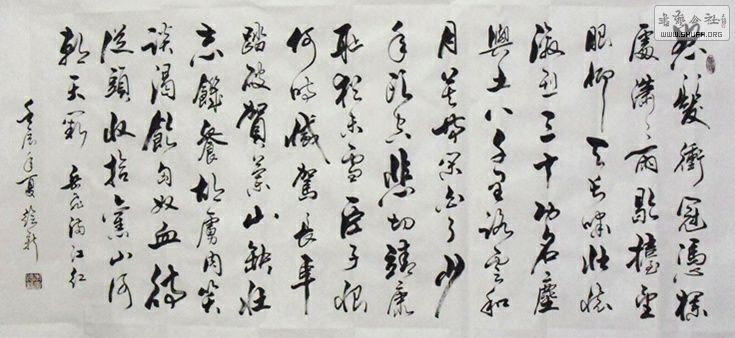 怒髮衝冠憑欄
處瀟瀟雨歇擡望
眼仰天長嘯壯懷
激烈三十功名塵
與土八千里路雲和
月莫等閒白了少
年頭空悲切靖康
恥猶未雪臣子恨
何時滅駕長車
踏破賀蘭山缺壯
志飢餐胡虜肉笑
談渴飲匈奴血待
從頭收拾舊山河
朝天闕 岳飛滿江紅
壬辰年夏 新
公社
WWW.SHUFA.ORG